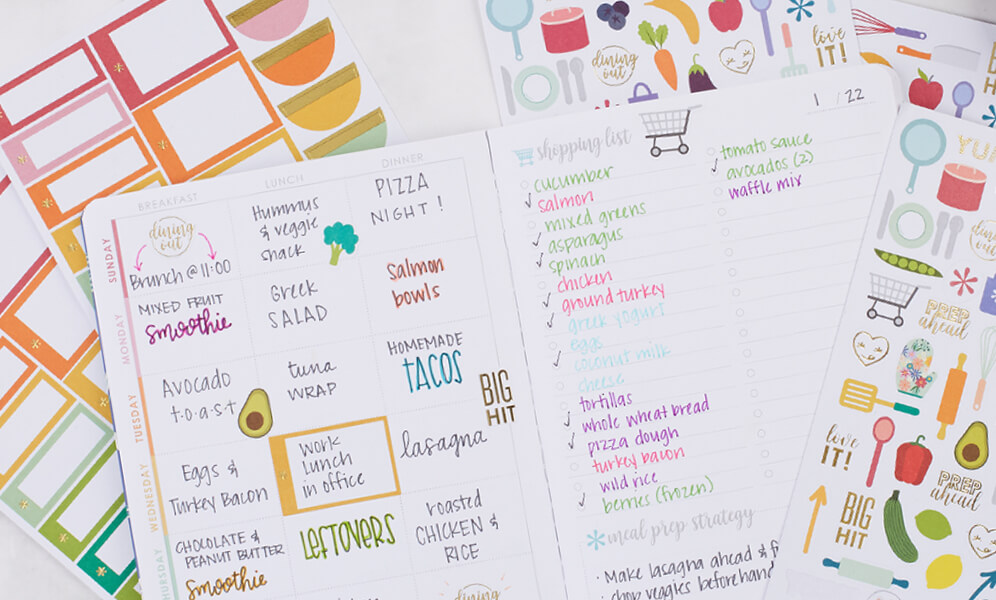 dining out
love IT!
BIG
YUM
BREAKFAST
LUNCH
DINNER
SUNDAY
dining out
Brunch @ 11:00
Hummus
& veggie
snack
PIZZA
NIGHT!
MONDAY
MIXED FRUIT
Smoothie
Greek
SALAD
Salmon
bowls
TUESDAY
Avocado
t•o•a•s•t
tuna
WRAP
HOMEMADE
tACOS
BIG
HIT
WEDNESDAY
Eggs &
Turkey Bacon
work
Lunch
in office
lasagna
THURSDAY
CHOCOLATE &
PEANUT BUTTER
Smoothie
LEFtOVERS
roasted
CHICKEN &
RICE
dining
1 / 22
shopping list
cucumber
salmon
mixed greens
asparagus
spinach
chicken
ground turkey
greek yogurt
eggs
coconut milk
cheese
tortillas
whole wheat bread
pizza dough
turkey bacon
wild rice
berries (frozen)
tomato sauce
avocados (2)
waffle mix
meal prep strategy
• Make lasagna ahead & f
• chop veggies beforehand
PREP
ahead
love
IT!
PREP
ahead
BIG
HIT